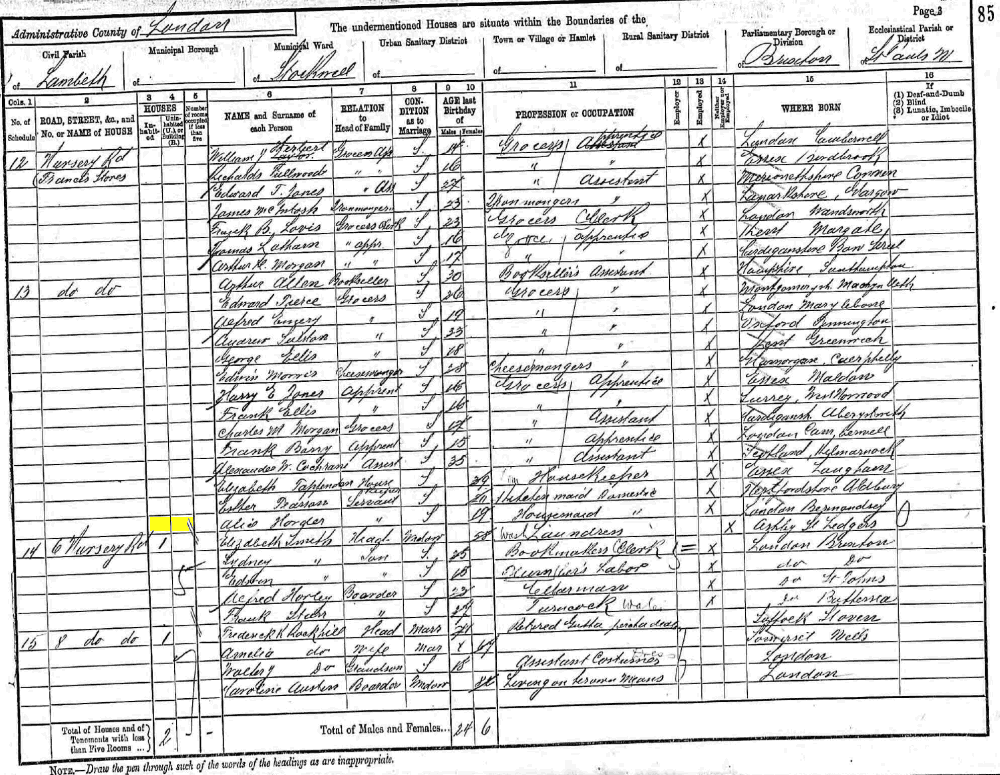 Page 3 85
Administrative County of London The undermentioned Houses are situate within the Boundaries of the
Civil Parish of Lambeth Municipal Borough of Municipal Ward of Stockwell Urban Sanitary District of Town or Village or Hamlet of Rural Sanitary District of Parliamentary Borough or Division of Brixton Ecclesiastical Parish or District of St Pauls W
Cols. 1 2 3 4 5 6 7 8 9 10 11 12 13 14 15 16
No. of Schedule ROAD, STREET, &c., and No. or NAME of HOUSE HOUSES Inhabited Uninhabited (U.) or Building (B.) Number of rooms occupied if less than five NAME and Surname of each Person RELATION to Head of Family CONDITION as to Marriage AGE last Birthday of Males Females PROFESSION or OCCUPATION Employer Employed Neither Employer nor Employed WHERE BORN If (1) Deaf-and-Dumb (2) Blind (3) Lunatic, Imbecile or Idiot
12 Nursery Rd William J Herbert Taylor Grocers App S Grocers apprentice Assistant X London Camberwell
(Francis Stores Fullwood " " S 16 " " X Essex
Edward T. Jones " Ass S 27 " Assistant X Merionethshire Corwen
James McIntosh Ironmongers S 23 Ironmongers " X Lanarkshire, Glasgow
Frank B. Lovis Grocers Clerk S 23 Grocers Clerk X London Wandsworth
Thomas Latham " appr S 16 Grocer apprentice X Kent Margate
Arthur R. Morgan " " S 17 " " X Cardiganshire
13 do do Arthur Allen Bookseller S 30 Booksellers Assistant X Hampshire Southampton
Edward Pierce Grocers S 26 Grocers " X Montgomerysh Machynlleth
Alfred Emery " S 19 " " X London Marylebone
Andrew " S 23 " " X Oxford
George Ellis " S 18 " " X Kent Greenwich
Edwin Morris Cheesemonger S 28 Cheesemongers " X Glamorgan, Caerphilly
Harry E Jones Apprent S 16 Grocers Apprentice X Essex Maldon
Frank Ellis " S 16 " " X Surrey, West Norwood
Charles M Morgan Grocers S 17 " Assistant X Cardigansh Aberystwith
Frank Barry Apprent S 15 " Apprentice X London Camberwell
Alexander W. Cochrane Assist S 35 " Assistant X Scotland, Kilmarnock
Elizabeth House Keeper S 29 Housekeeper X Essex Langham
Esther Pearson Servant S 20 Kitchen maid Domestic X Hertfordshire Aldbury
Alice " S 19 Housemaid " X London Bermondsey
14 6 Nursery Rd 1 Elizabeth Smith Head Widow 58 Laundress X Ashby St Ledgers
Sydney " Son S 25 Bookmakers Clerk X London Brixton
Edwin " " S 15 Labor X do Do
Alfred Horley Boarder S 23 Cellarman X do St Johns
Frank " S 27 Turncock X do Battersea
15 8 do do 1 Frederick R Rockhill Head Marr 71 Retired Gutta percha dealer Suffock Stoven
Amelia do Wife Mar 67 Somerset Wells
Walter Do Grandson S 18 Assistant Costumier London
Caroline Austin Boarder Widow 82 Living on her own Means London
Total of Houses and of Tenements with less than Five Rooms ... 2 - - Total of Males and Females... 24 6
NOTE.—Draw the pen through such of the words of the headings as are inappropriate.